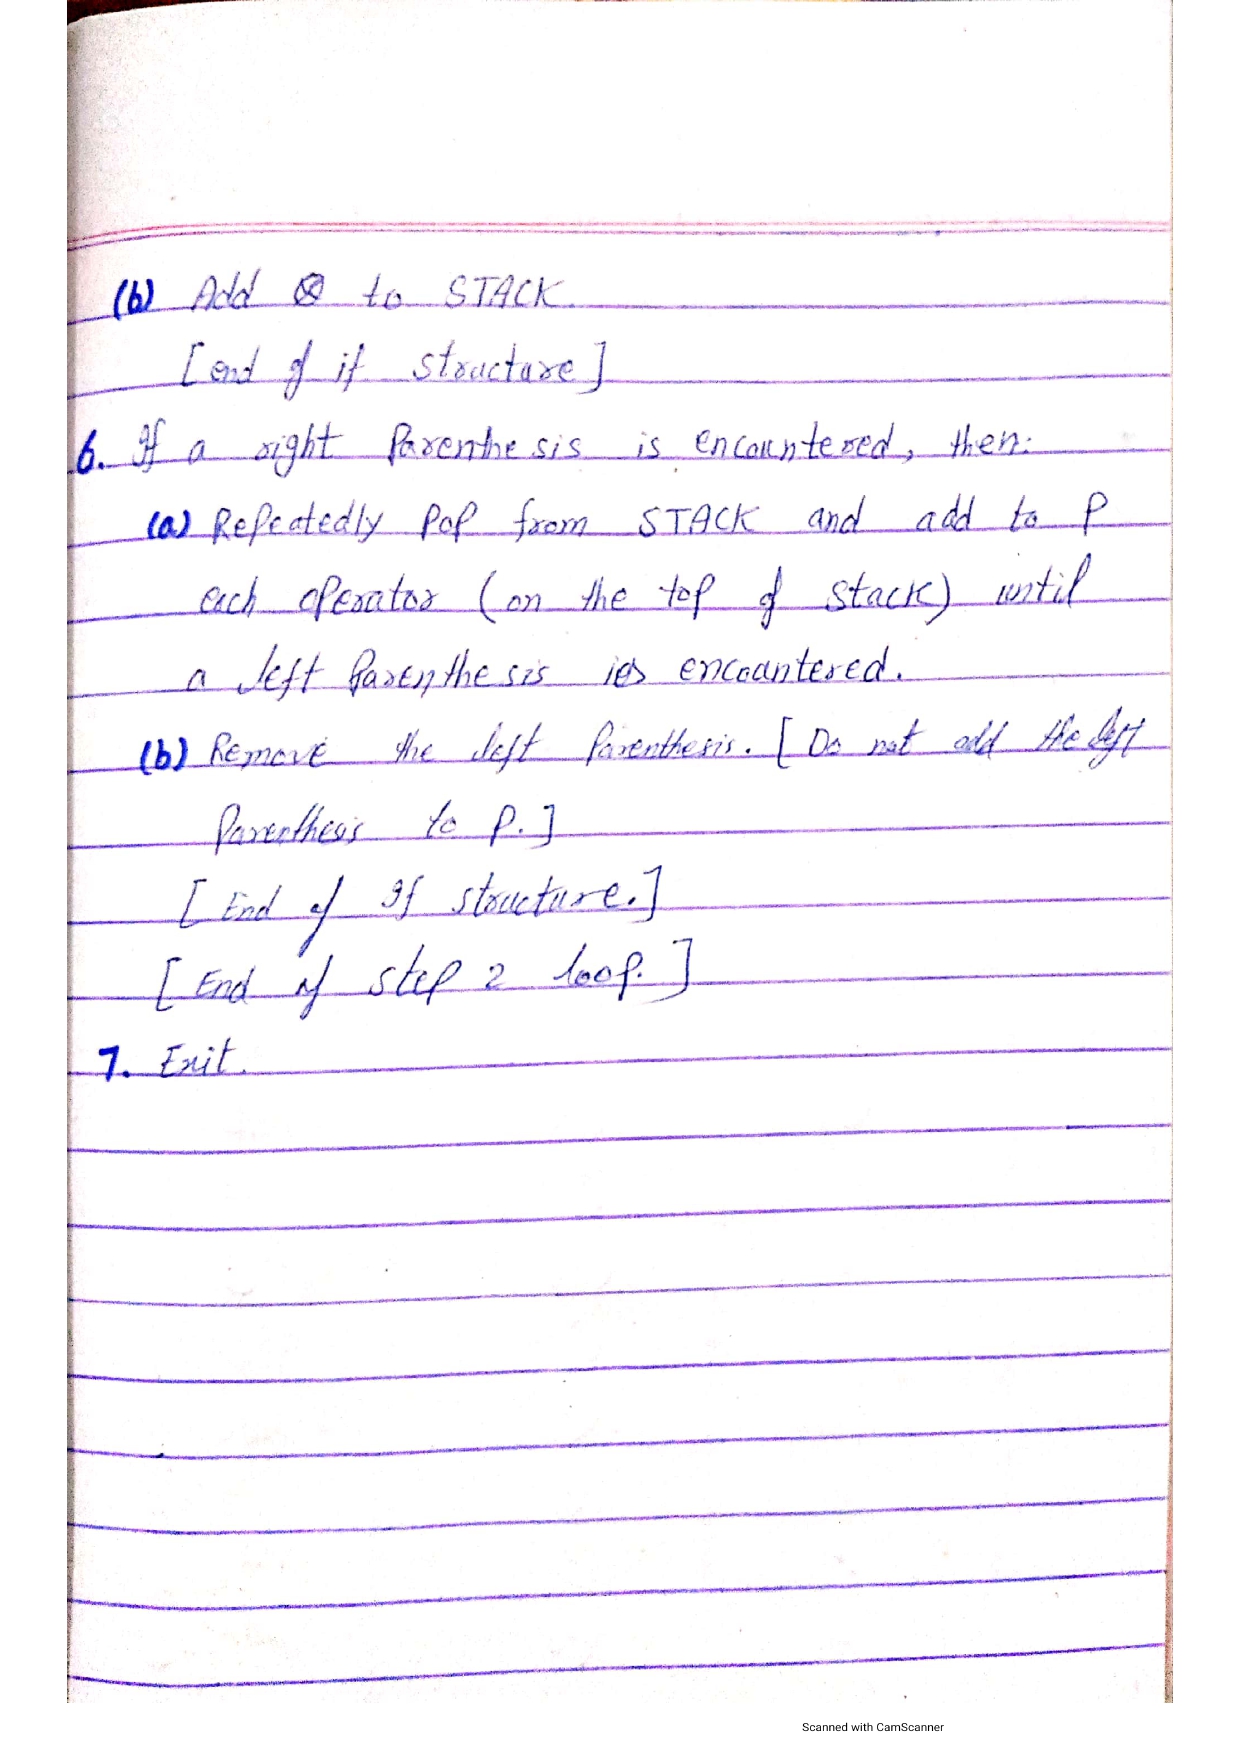 (b) Add ⊗ to STACK.
[end of if structure]
6. If a right Parenthesis is encountered, then:
(a) Repeatedly Pop from STACK and add to P
each operator (on the top of stack) until
a left Parenthesis is encountered.
(b) Remove the left Parenthesis. [Do not add the left
Parenthesis to P.]
[End of If structure.]
[End of step 2 loop.]
7. Exit.
Scanned with CamScanner